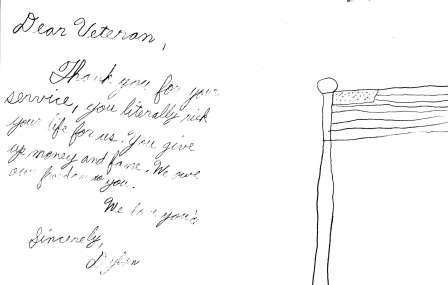 Dear Veteran,
Thank you for your
service, you literally risk
your life for us. You give
up money and fame. We owe
our freedom to you.
We love you's
Sincerely,